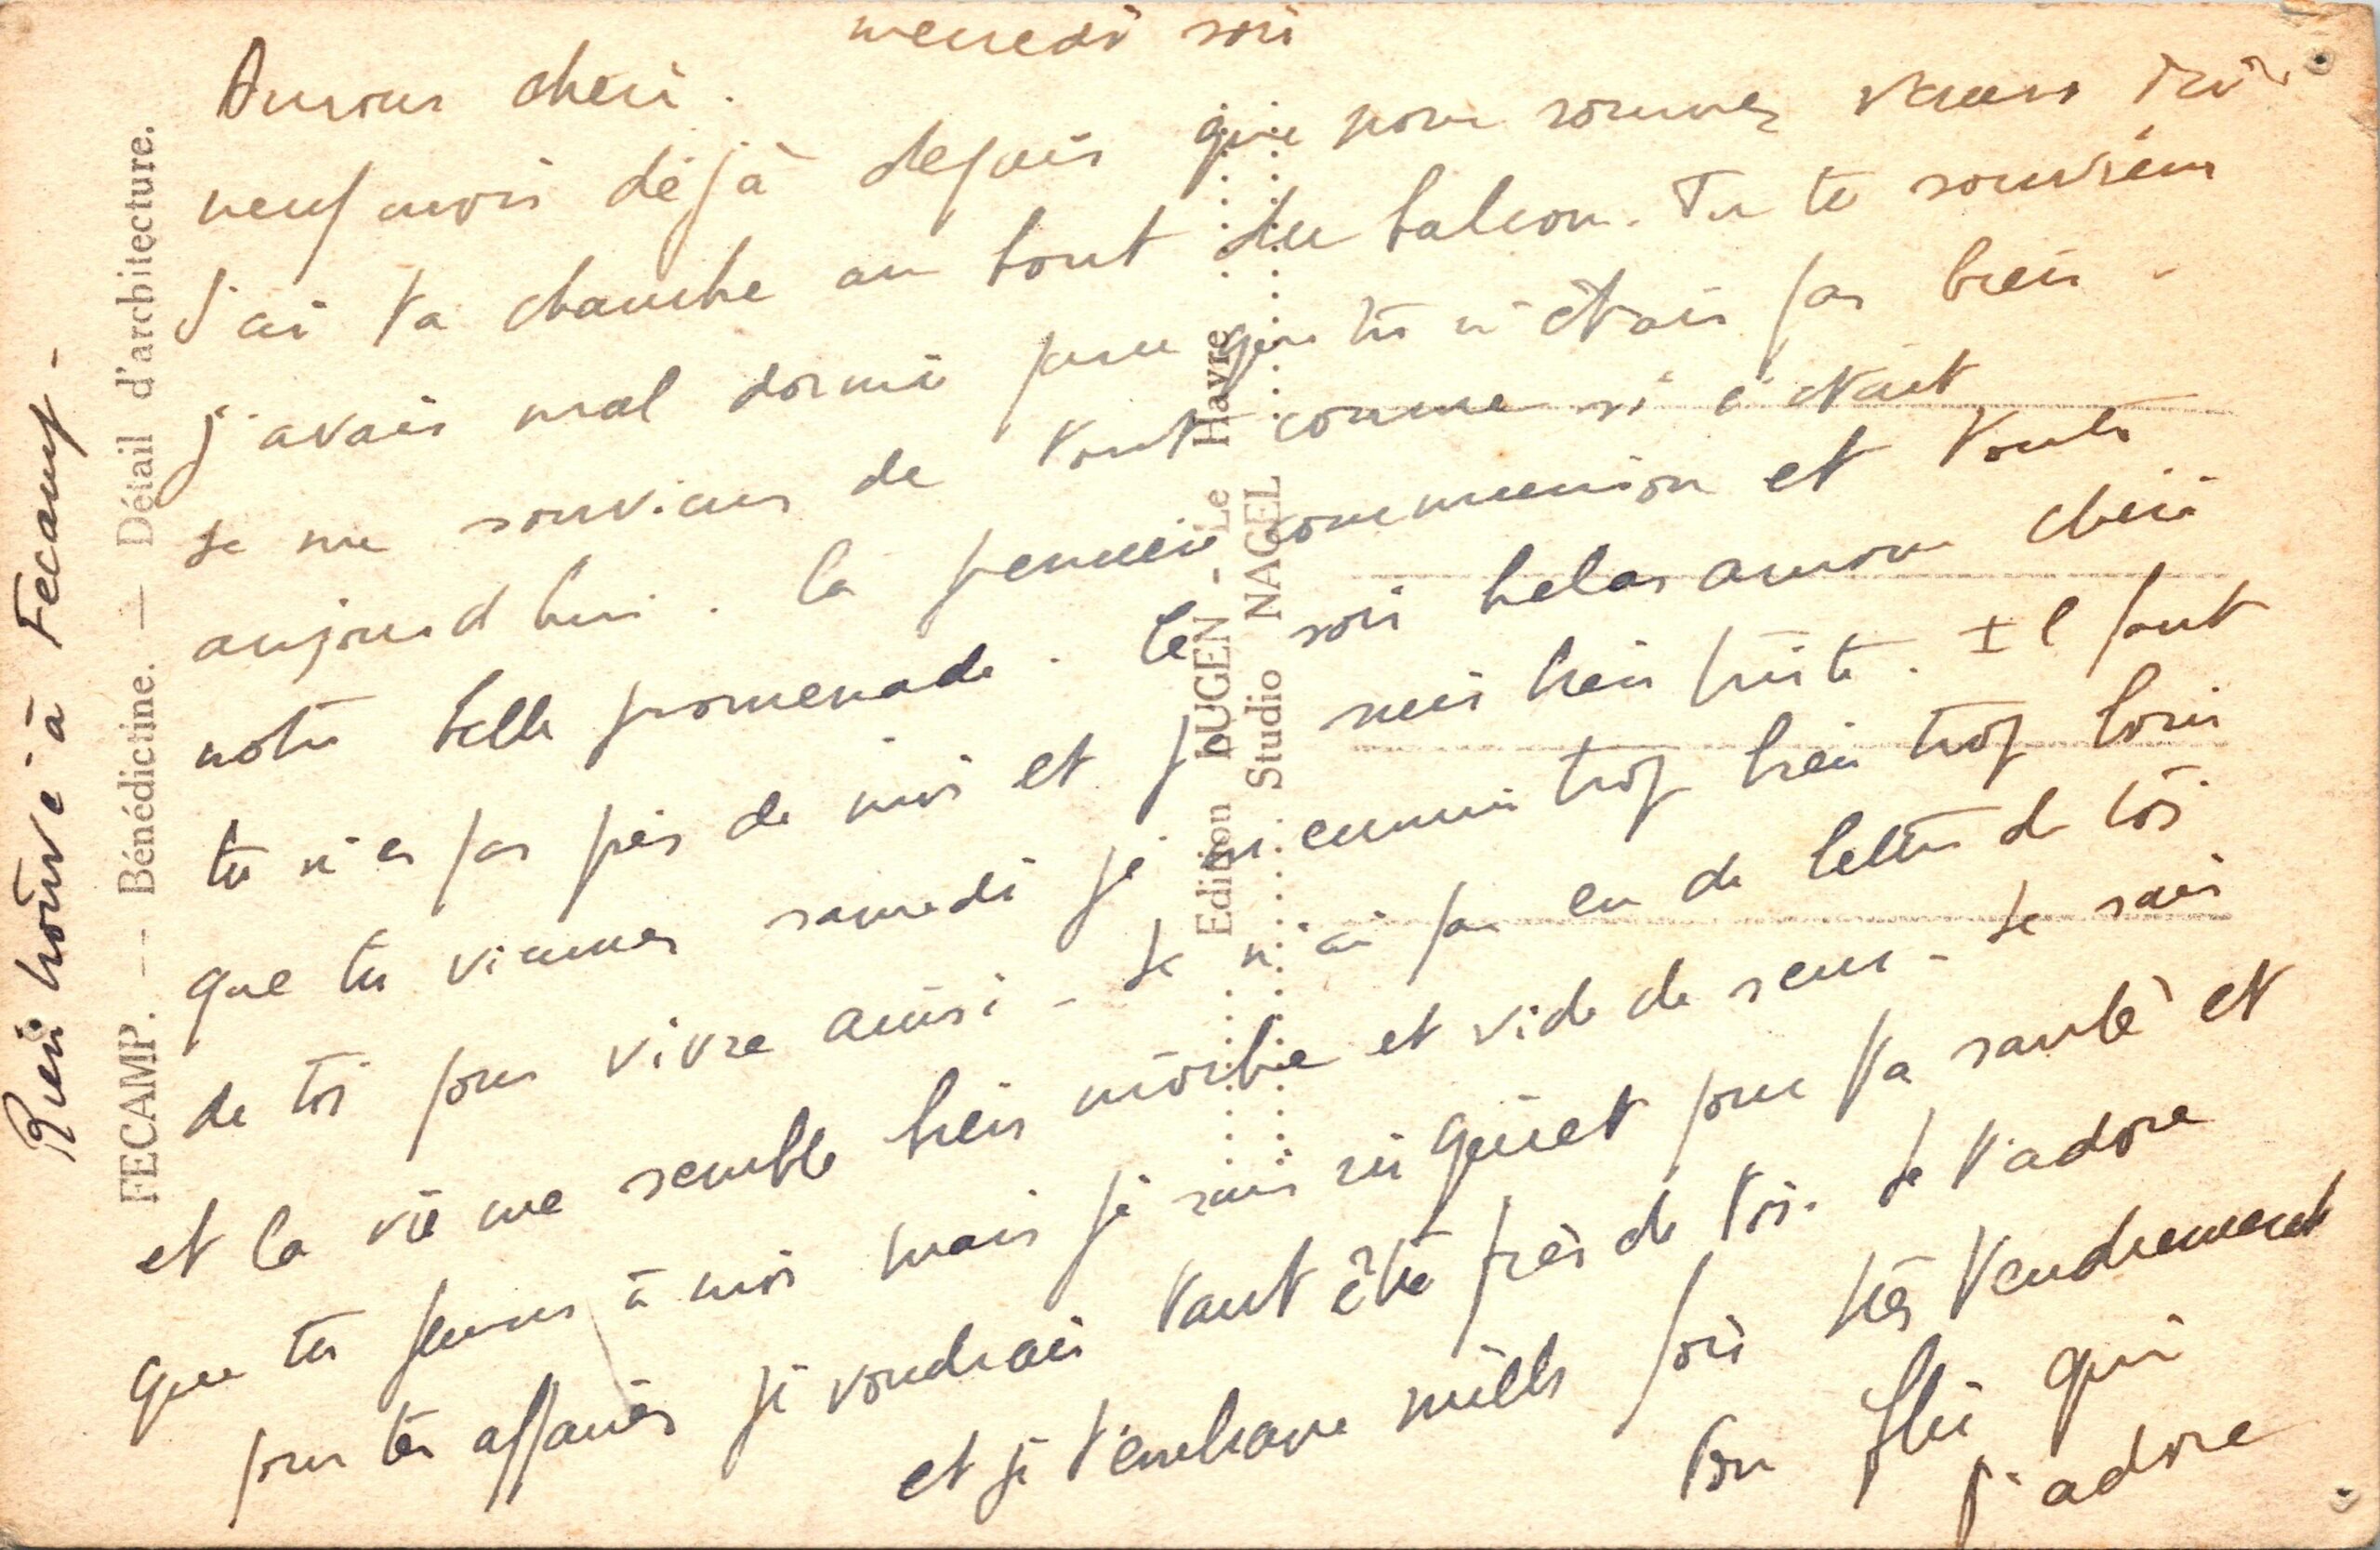 mercredi soir
Amour chéri.
neuf mois déjà depuis que nous sommes venus ici
J'ai ta chambre au bout du balcon. Tu te souviens
j'avais mal dormi parce que tu n'étais pas bien -
Je me souviens de tout comme si c'était
aujourd'hui. la première communion et toute
notre belle promenade. le soir helas amour chéri
tu n'es pas près de moi et je suis bien triste. Il faut
que tu viennes samedi je m'ennuie trop bien trop loin
de toi pour vivre ainsi - Je n'ai pas eu de lettre de toi
et la vie me semble bien morbie et vide de sens - Je sais
que tu penses à moi mais je suis inquiet pour ta santé et
pour tes affaires je voudrais tant être près de toi. Je t'adore
et je t'embrasse mille fois très tendrement
ton qui
t'adore
Rien trouvé à Fecamp -
FECAMP. -- Bénédictine. — Détail d'architecture.
Edition bUGEN - Le Havre
Studio NAGEL